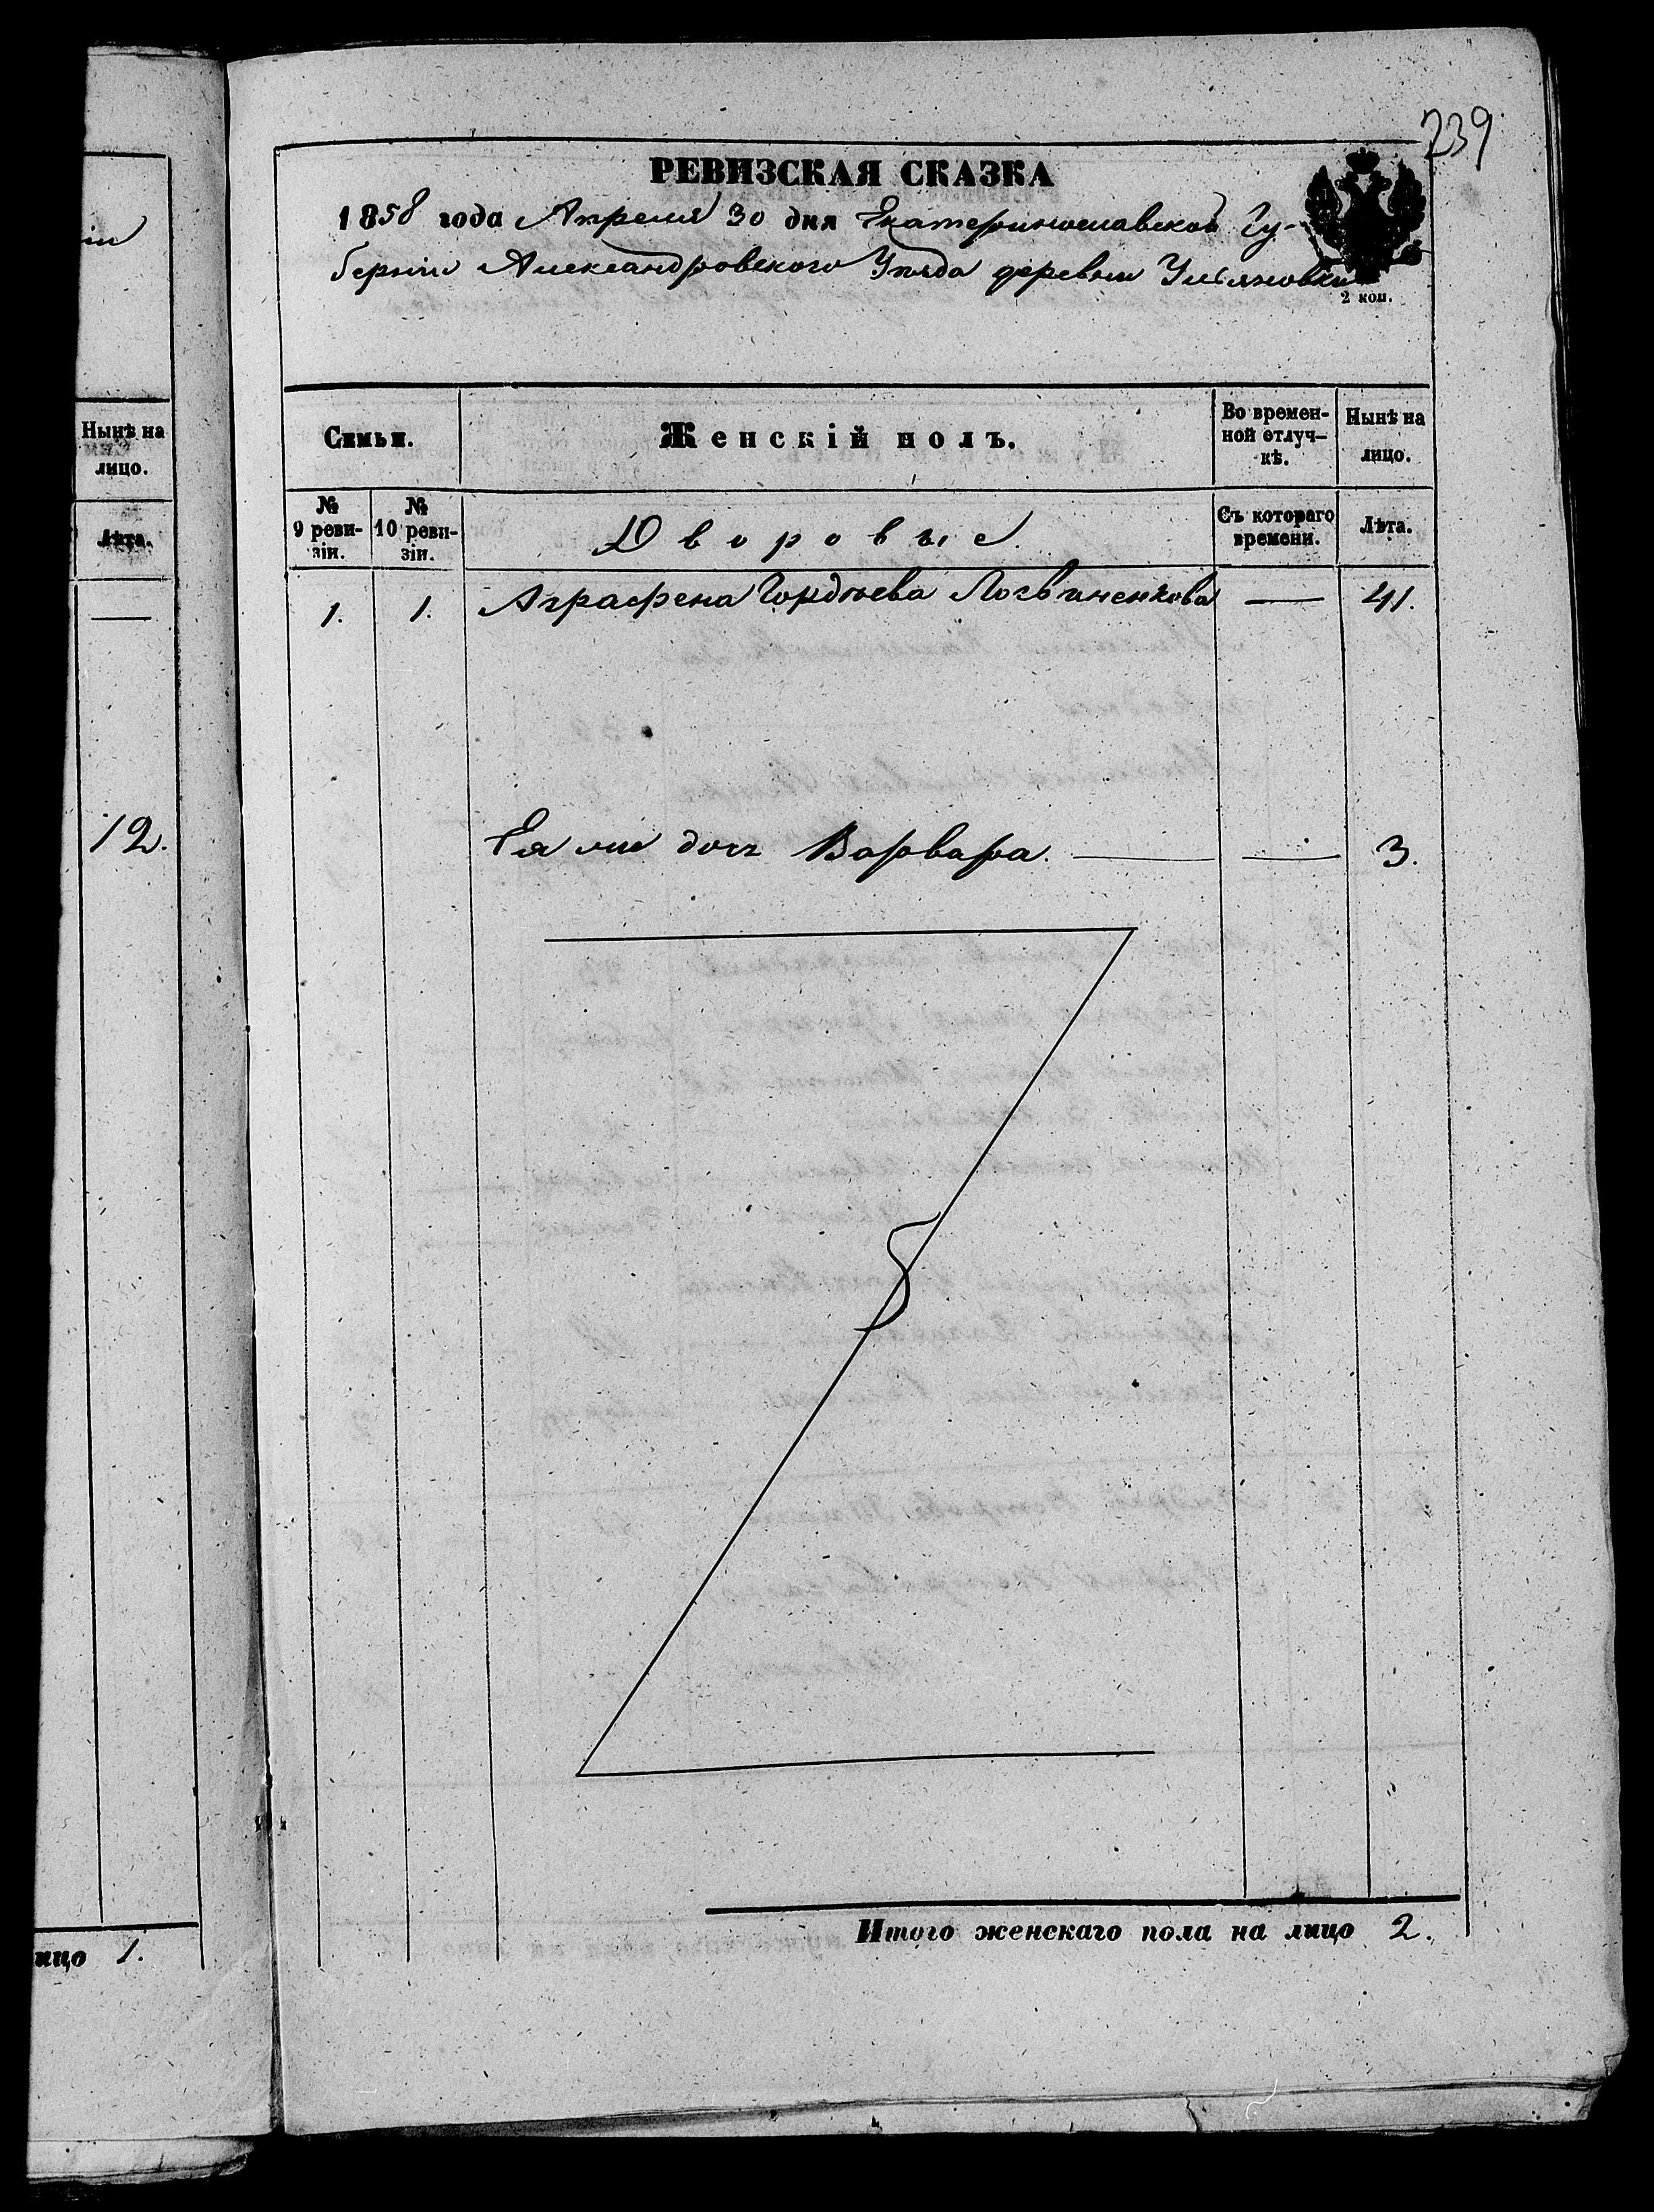 239
РЕВИЗСКАЯ СКАЗКА
1858 года Апреля 30 дня Екатеринославской Гу-
берніи Александровского Уѣзда деревни Ульяновки
2 коп.
Семьи.
Женскій полъ.
Во времен-
ной отлуч-
кѣ.
Нынѣ на
лицо.
№
9 реви-
зіи.
№
10 реви-
зіи.
Дворовые.
Съ котораго
времени.
Лѣта.
1. 1. Аграфена Гордѣева Логвиненкова — 41.
Ея же дочь Варвара. — — 3.
Итого женскаго пола на лицо 2.
Нынѣ на
лицо.
Лѣта.
—
12.
ицо 1.